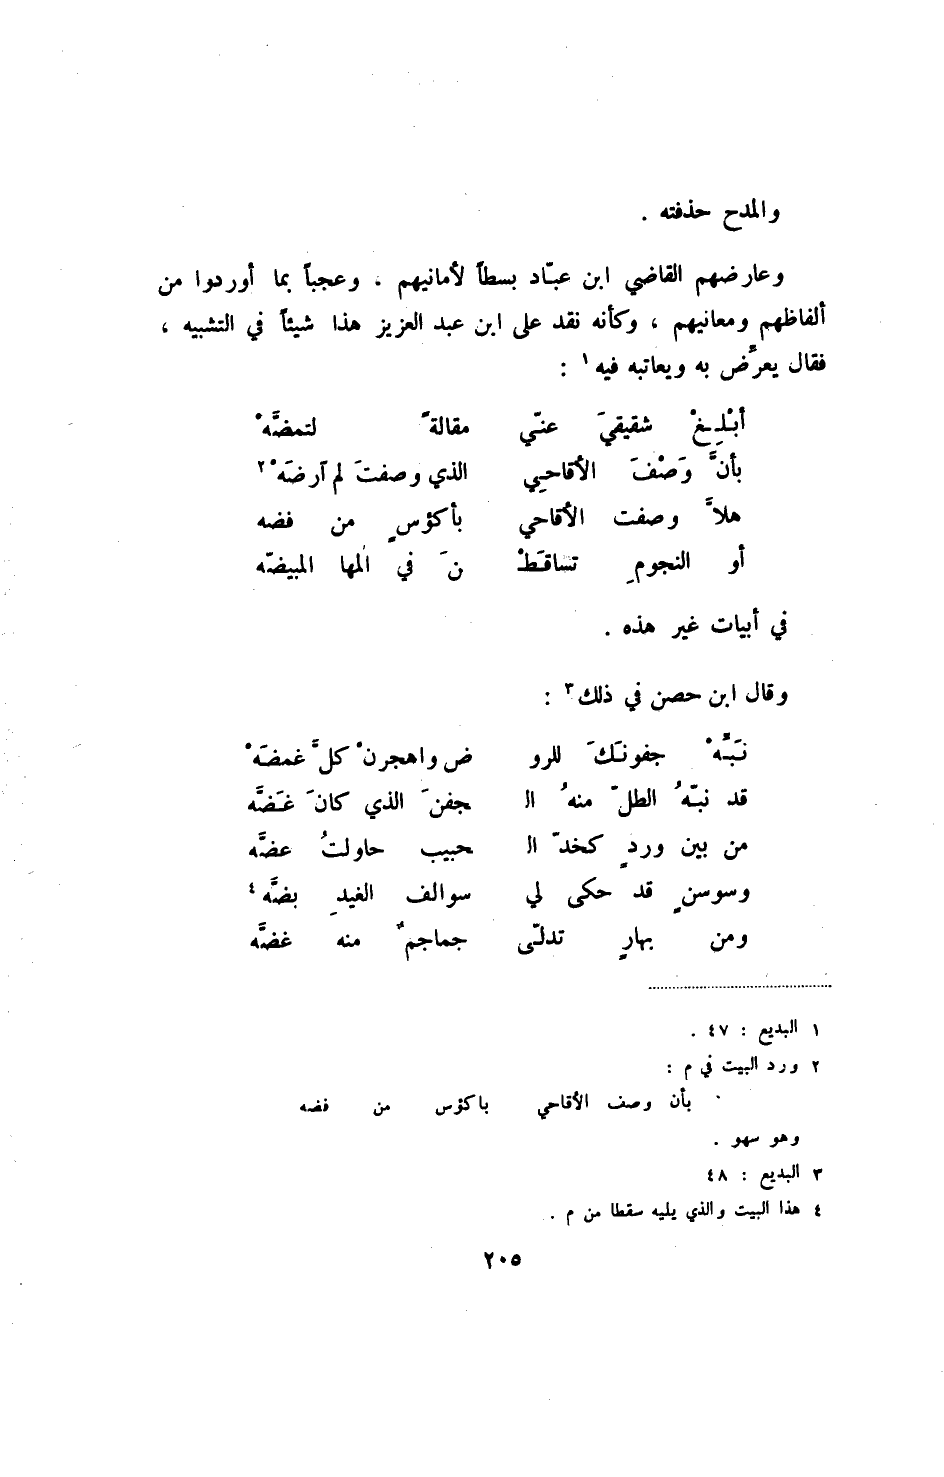 والمدح حذفته .
وعارضهم القاضي ابن عبّاد بسطاً لأمانيهم ، وعجباً بما أوردوا من
ألفاظهم ومعانيهم ، وكأنه نقد على ابن عبد العزيز هذا شيئاً في التشبيه ،
فقال يعرِّض به ويعاتبه فيه١ :
أبْلِغْ شقيقيَ عنّي مقالةً لتمضَّهْ
بأنَّ وَصْفَ الأقاحِي الذي وصفتَ لم آرضَهْ٢
هلاَّ وصفت الأقاحي بأكؤسٍ من فضه
أو النجومِ تساقَطْ نَ في المها المبيضّه
في أبيات غير هذه .
وقال ابن حصن في ذلك٣ :
نَبِّهْ جفونَكَ للرو ض واهجرنْ كلَّ غمضَهْ
قد نبّهُ الطلّ منهُ ال جفنَ الذي كانَ غَضَّه
من بين وردٍ كخدّ ال حبيب حاولتُ عضَّه
وسوسنٍ قد حكى لي سوالف الغيدِ بضَّه٤
ومن بهارٍ تدلّى جماجمٌ منه غضَّه
١ البديع : ٤٧ .
٢ ورد البيت في م :
بأن وصف الأقاحي باكؤس من فضه
وهو سهو .
٣ البديع : ٤٨
٤ هذا البيت والذي يليه سقطا من م .
٢٠٥